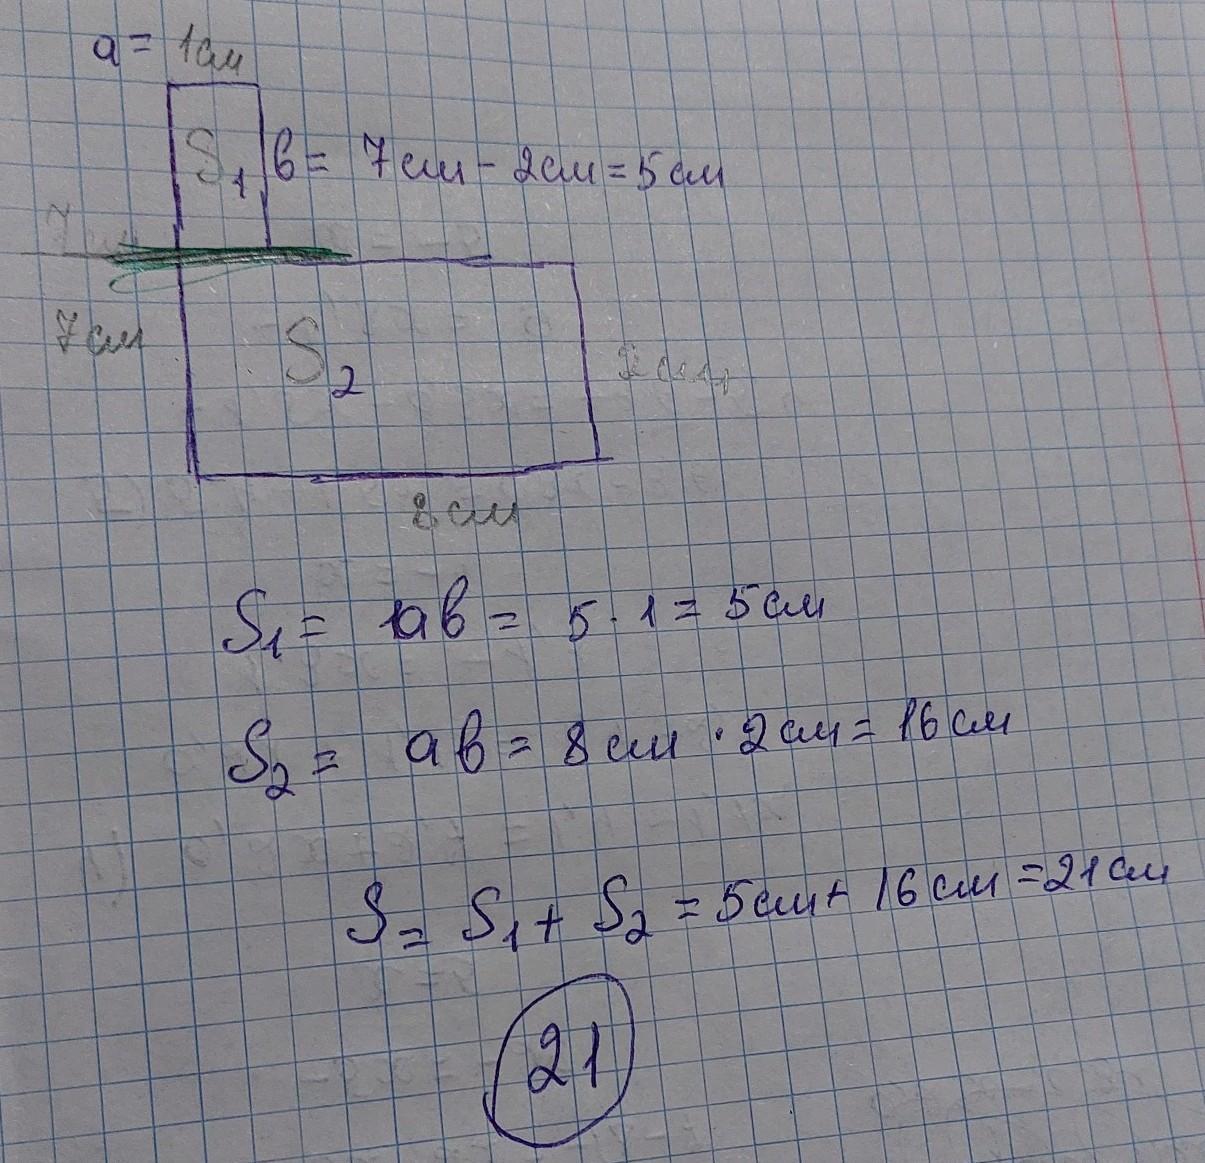 a = 1см
S1 в = 7см - 2см = 5см
7см
S2
2см
8см
S1 = ав = 5 · 1 = 5см
S2 = ав = 8см · 2см = 16см
S = S1 + S2 = 5см + 16см = 21см
21